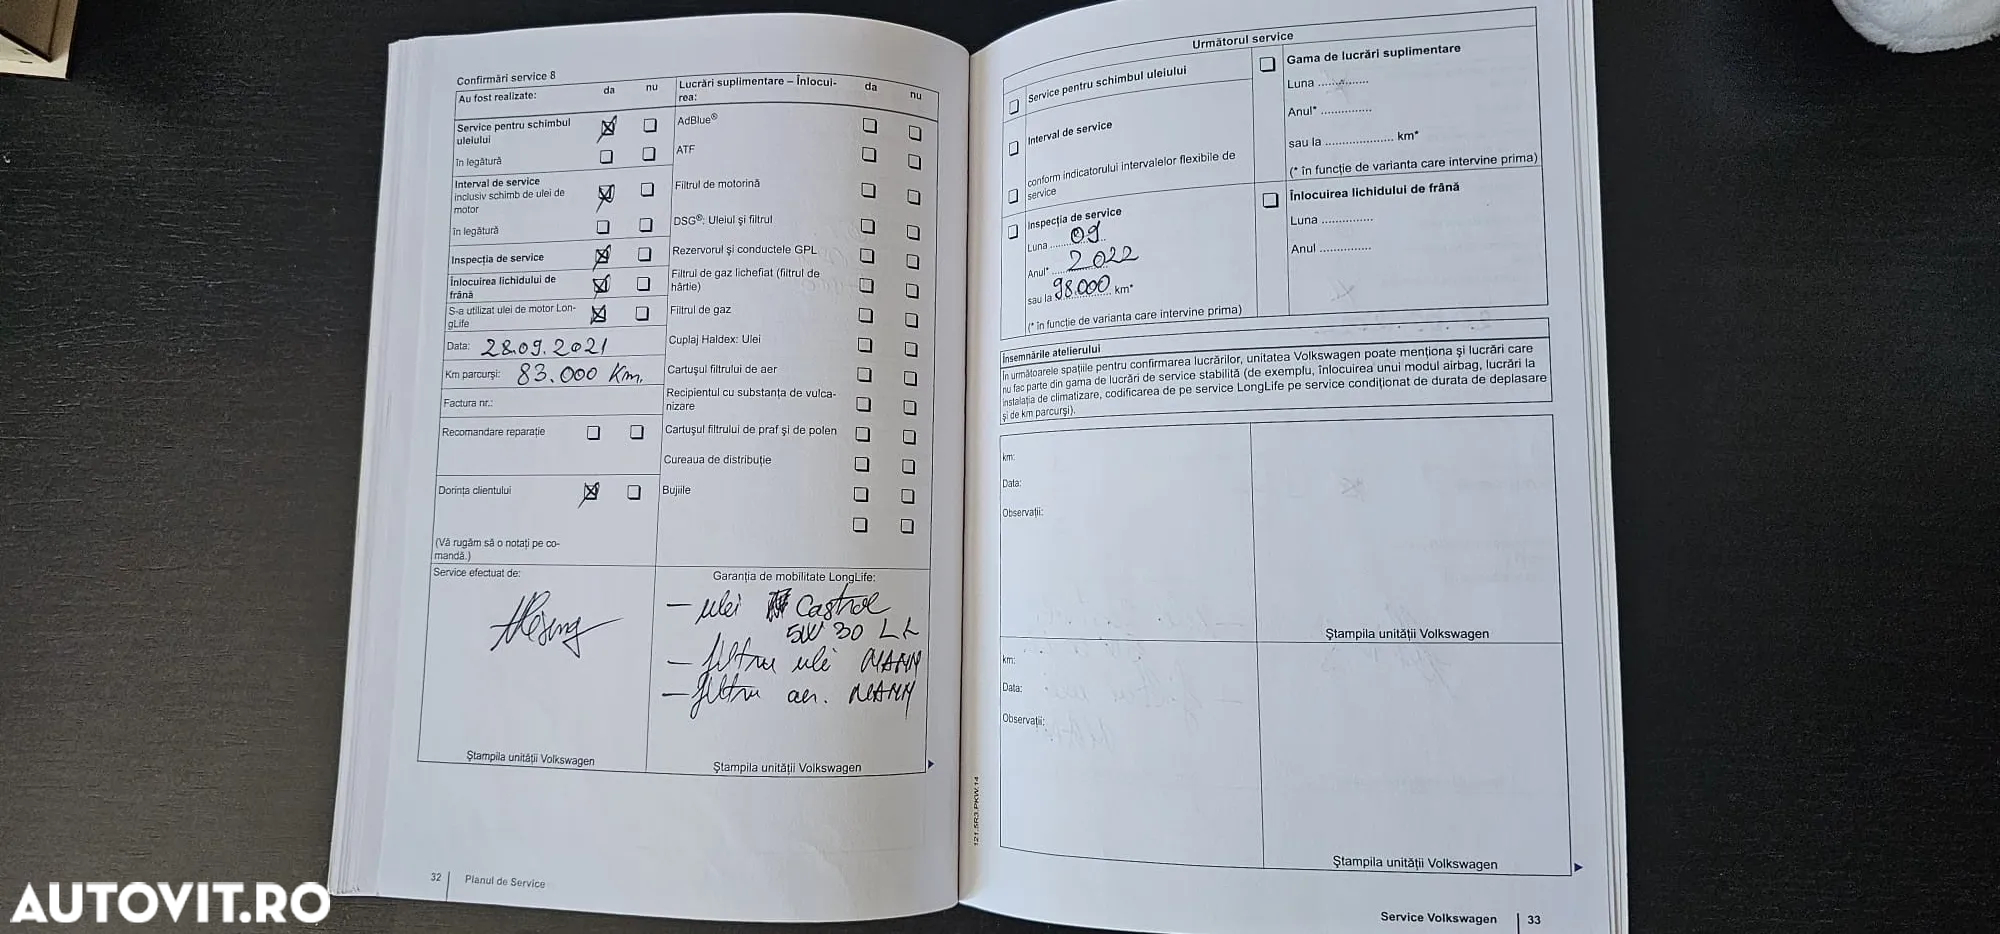 Confirmări service 8
Au fost realizate: da nu
Service pentru schimbul
uleiului
în legătură
Interval de service
inclusiv schimb de ulei de
motor
în legătură
Inspecția de service
Înlocuirea lichidului de
frână
S-a utilizat ulei de motor Lon-
gLife
Data: 28.09.2021
Km parcurși: 83.000 Km.
Factura nr.:
Recomandare reparație
Dorința clientului
(Vă rugăm să o notați pe co-
mandă.)
Service efectuat de:
Ștampila unității Volkswagen
Lucrări suplimentare – Înlocui-
rea: da nu
AdBlue®
ATF
Filtrul de motorină
DSG®: Uleiul și filtrul
Rezervorul și conductele GPL
Filtrul de gaz lichefiat (filtrul de
hârtie)
Filtrul de gaz
Cuplaj Haldex: Ulei
Cartușul filtrului de aer
Recipientul cu substanța de vulca-
nizare
Cartușul filtrului de praf și de polen
Cureaua de distribuție
Bujiile
Garanția de mobilitate LongLife:
– ulei Castrol
5W 30 LL
– filtru ulei MANN
– filtru aer. MANN
Ștampila unității Volkswagen
32 Planul de Service
Următorul service
Service pentru schimbul uleiului
Interval de service
conform indicatorului intervalelor flexibile de
service
Inspecția de service
Luna ........ 09
Anul* ........ 2022
sau la 98.000 km*
(* în funcție de varianta care intervine prima)
Gama de lucrări suplimentare
Luna ...............
Anul* ...............
sau la .................... km*
(* în funcție de varianta care intervine prima)
Înlocuirea lichidului de frână
Luna ...............
Anul ...............
Însemnările atelierului
În următoarele spațiile pentru confirmarea lucrărilor, unitatea Volkswagen poate menționa și lucrări care
nu fac parte din gama de lucrări de service stabilită (de exemplu, înlocuirea unui modul airbag, lucrări la
instalația de climatizare, codificarea de pe service LongLife pe service condiționat de durata de deplasare
și de km parcurși).
km:
Data:
Observații:
Ștampila unității Volkswagen
km:
Data:
Observații:
Ștampila unității Volkswagen
121.5R3.PKW.14
Service Volkswagen 33
AUTOVIT.RO